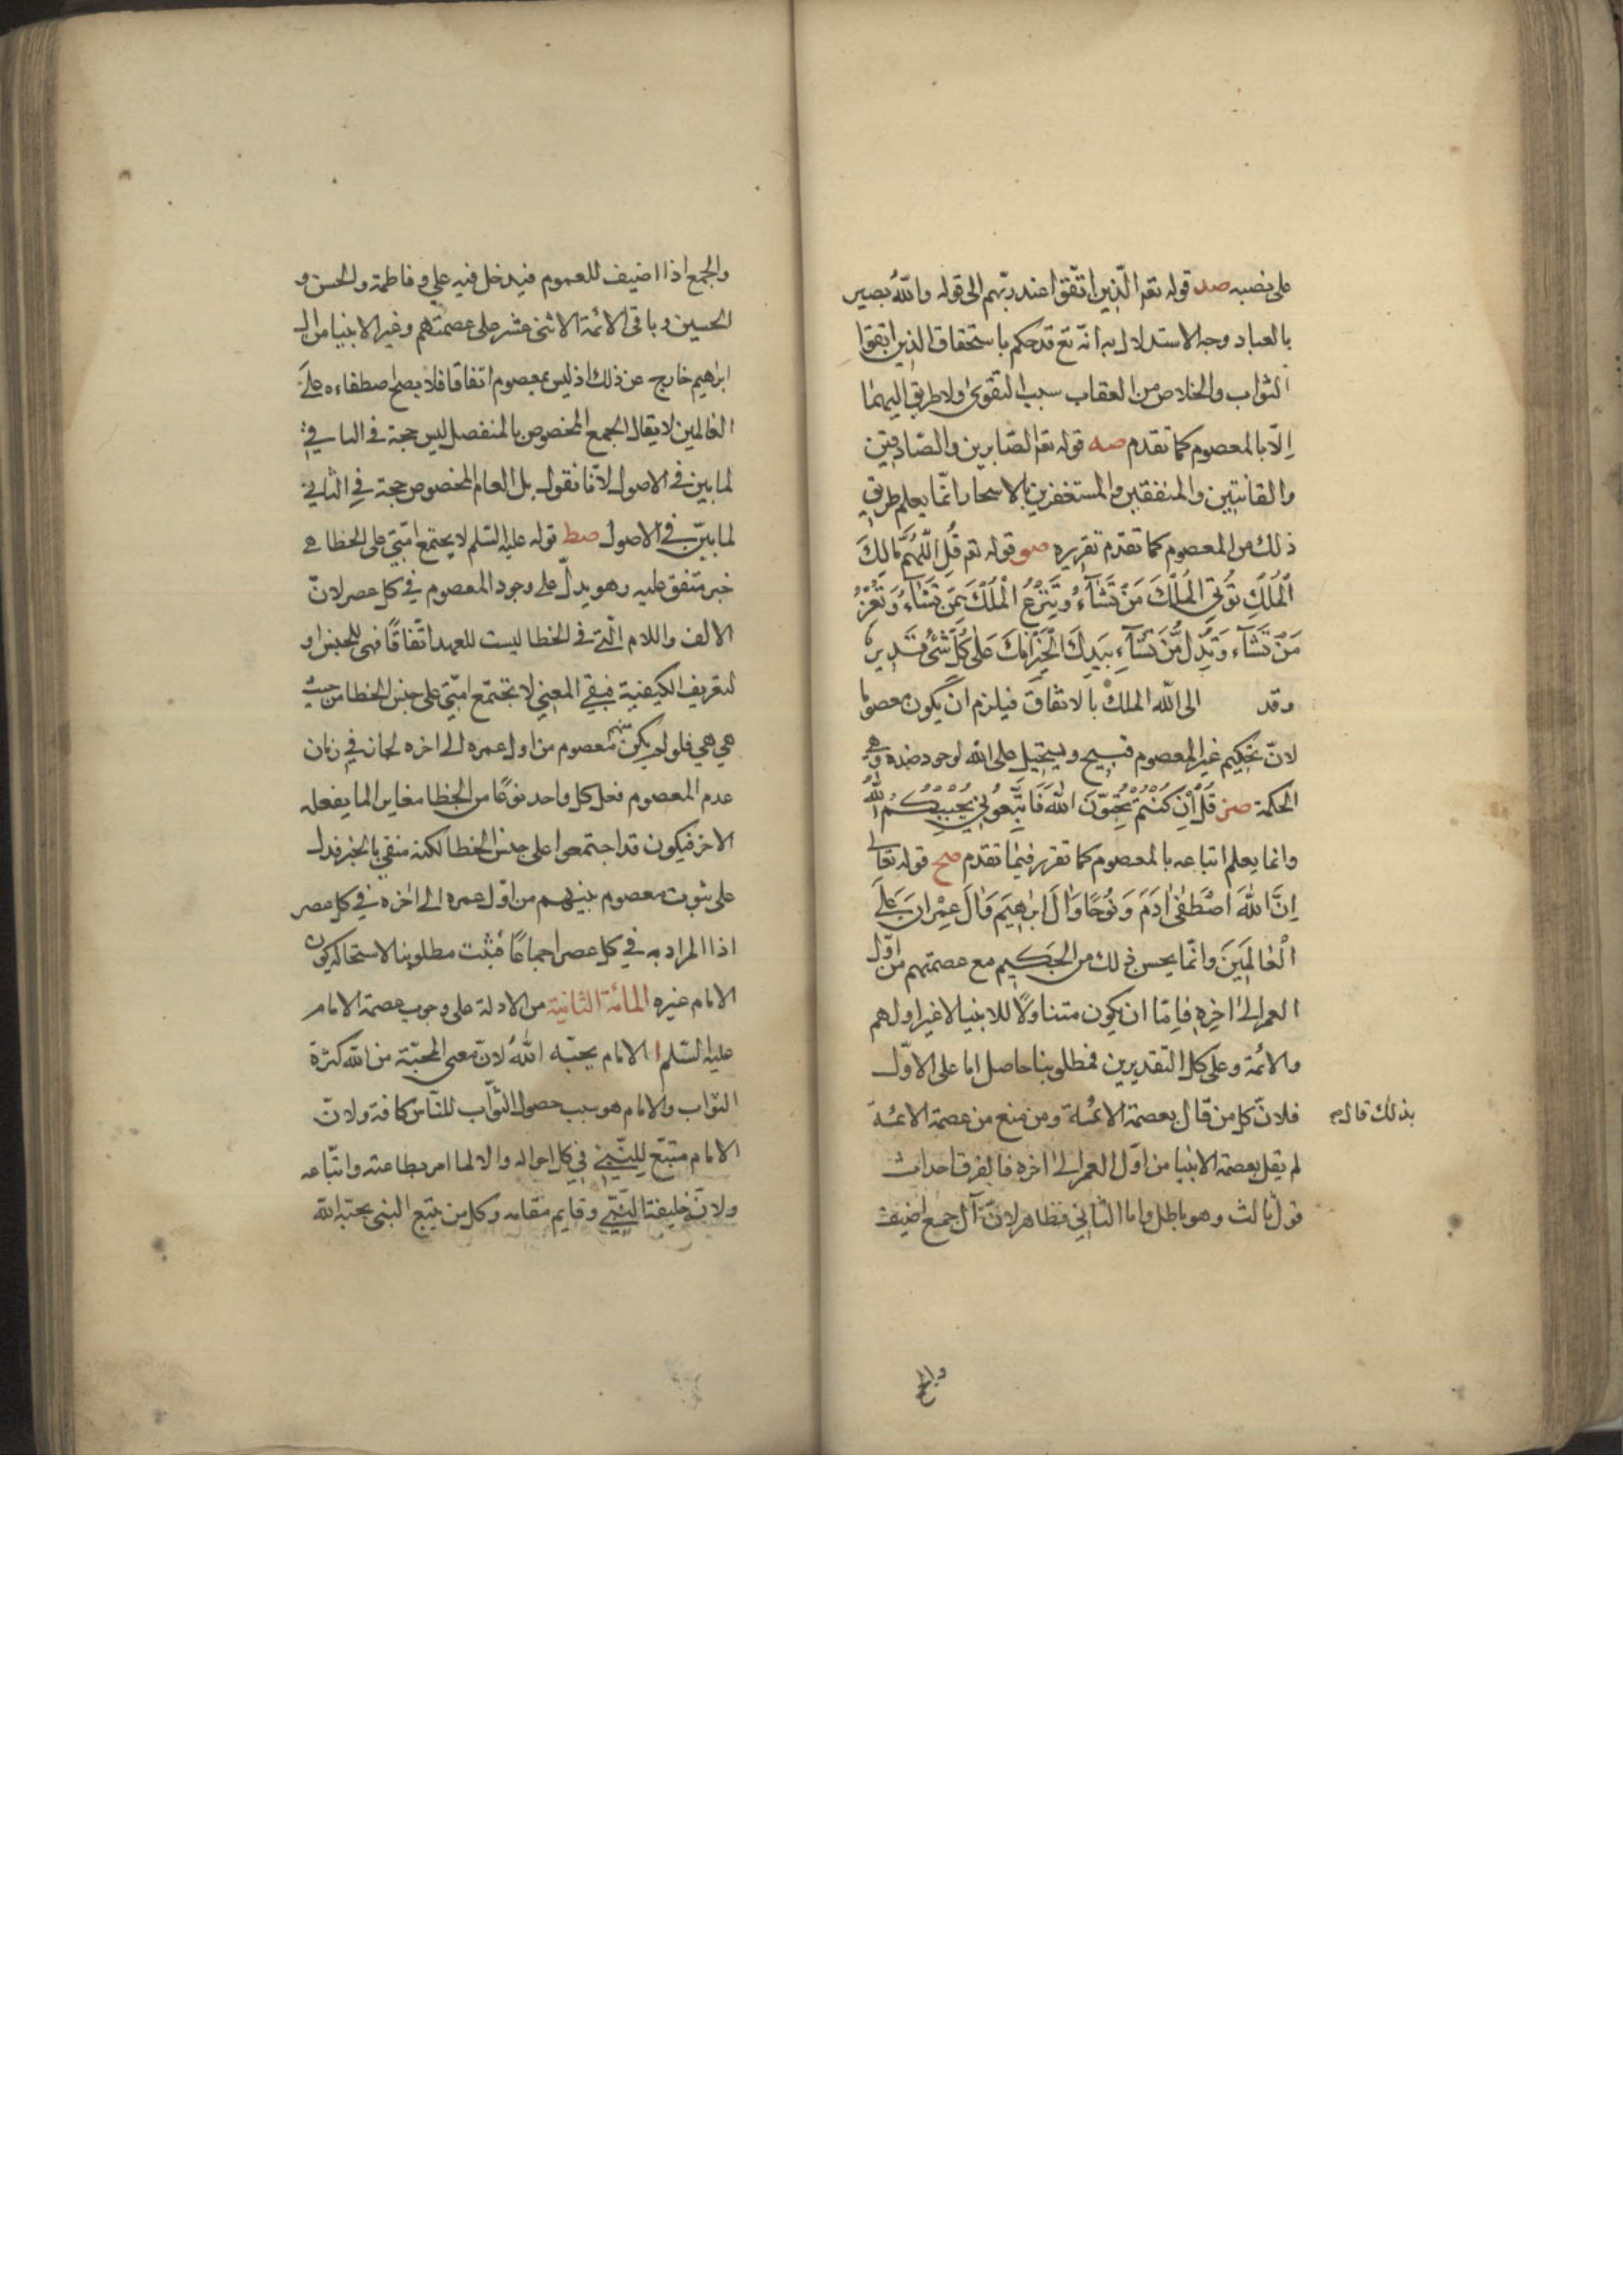 على نصبه صد قوله تعم الّذين اتّقوا عند ربّهم الى قوله والله بصير
بالعباد وجه الاستدلال به انّه تع قد حكم باستحقاق الذين اتقوا
الثواب والخلاص من العقاب بسبب التقوى ولا طريق اليهما
اِلّا بالمعصوم كما تقدم صه قوله تعم الصّابرين والصّادقين
والقانتين والمنفقين والمستغفرين بالاسحار انّما يعلم طريق
ذلك من المعصوم كما تقدّم تقريره صو قوله تعم قُلِ اللّهُمَّ مَالِكَ
الْمُلْكِ تُوتِي الْمُلْكَ مَنْ تَشَآءُ وَتَنْزِعُ الْمُلْكَ مِمَّنْ تَشَآءُ وَتُعِزُّ
مَنْ تَشَآء وَتُذِلُّ مَنْ تَشَآءِ بِيَدِكَ الْخَيْرُ اِنَّكَ عَلى كُلِّ شَىْءٍ قَدِيرٌ
وقد الى الله الملك بالاتفاق فيلزم ان يكون معصومًا
لانّ تحكيم غير المعصوم قبيح ويستحيل على الله لوجود ضده وهى
الحكمة صز قُلْ اِنْ كُنْتُمْ تُحِبّوُنَ اللهَ فَاتَّبِعُونِي يُحْبِبْكُمُ اللهُ
وانما يعلم اتباعه بالمعصوم كما تقرر فيما تقدم صح قوله تعالى
اِنَّ اللهَ اصْطَفٰى اٰدَمَ وَنُوحًا وَاٰلَ اِبْراهِيمَ وَاٰلَ عِمْرانَ عَلَى
الْعٰالَمِينَ وانّما يحسن ذلك من الحكيم مع عصمتهم من اوّل
العمر الى اخِرِه فاِمّا ان يكون متناولًا للانبيا لا غير او لهم
والائمة وعلى كل التقديرين فمطلوبنا حاصل اما على الاوّل
فلانّ كل من قال بعصمة الائمّة ومن منع من عصمة الائمّة
بذلك قال
لم يقل بعصمة الانبيا من اوّل العمر الى اخره فالفرق احداث
قول ثالث وهو باطل واما الثانى فظاهر لانّ آل جمع اضيف
والجمع
والجمع اذا اضيف للعموم فيدخل فيه على وفاطمة والحسن و
الحسين وباقى الائمة الاثنى عشر على عصمتهم وغير الانبيا من ال
ابراهيم خارج عن ذلك اذ ليس بمعصوم اتفاقا فلا يصلح اصطفاءه على
العالمين لا يقال الجمع المخصوص بالمنفصل ليس حجة فى الباقي
لما بين فى الاصول لانّا نقول بل العام المخصوص حجة فى الثانى
لما بيّن فى الاصول صط قوله عليه السّلم لا يجتمع امّتى على الخطا هى
خبر متفق عليه وهو يدلّ على وجود المعصوم في كل عصر لانّ
الالف واللام الّتى فى الخطا ليست للعهد اتّفاقًا فهى للجنس او
لتعريف الكيفية فبقي المعنى لا تجتمع امّتى على جنس الخطا من حيث
هي هي فلو لم يكن منهم معصوم من اول عمره الى اخره لجاز في زمان
عدم المعصوم فعل كل واحد نوعًا من الخطا مغاير لما يفعله
الاخر فيكون قد اجتمعوا على جنس الخطا لكنه منفى بالخبر فدل
على ثبوت معصوم بينهم من اوّل عمره الى اخره في كل عصر
اذا المراد به في كل عصر اجماعًا فثبت مطلوبنا لاستحالة كون
الامام غيره المائة الثانية من الادلة على وجوب عصمة الامام
عليه السّلم ا الامام يحبّه اللهُ لانّ معنى المحبّة من الله كثرة
الثواب والامام هو سبب حصول الثواب للنّاس كافة ولانّ
الامام متبّع للنّبى فى كل احواله والا لما امر بطاعته واتّباعه
ولانّه خليفة النّبى وقايم مقامه وكل من يتبع النبى يحبّه الله